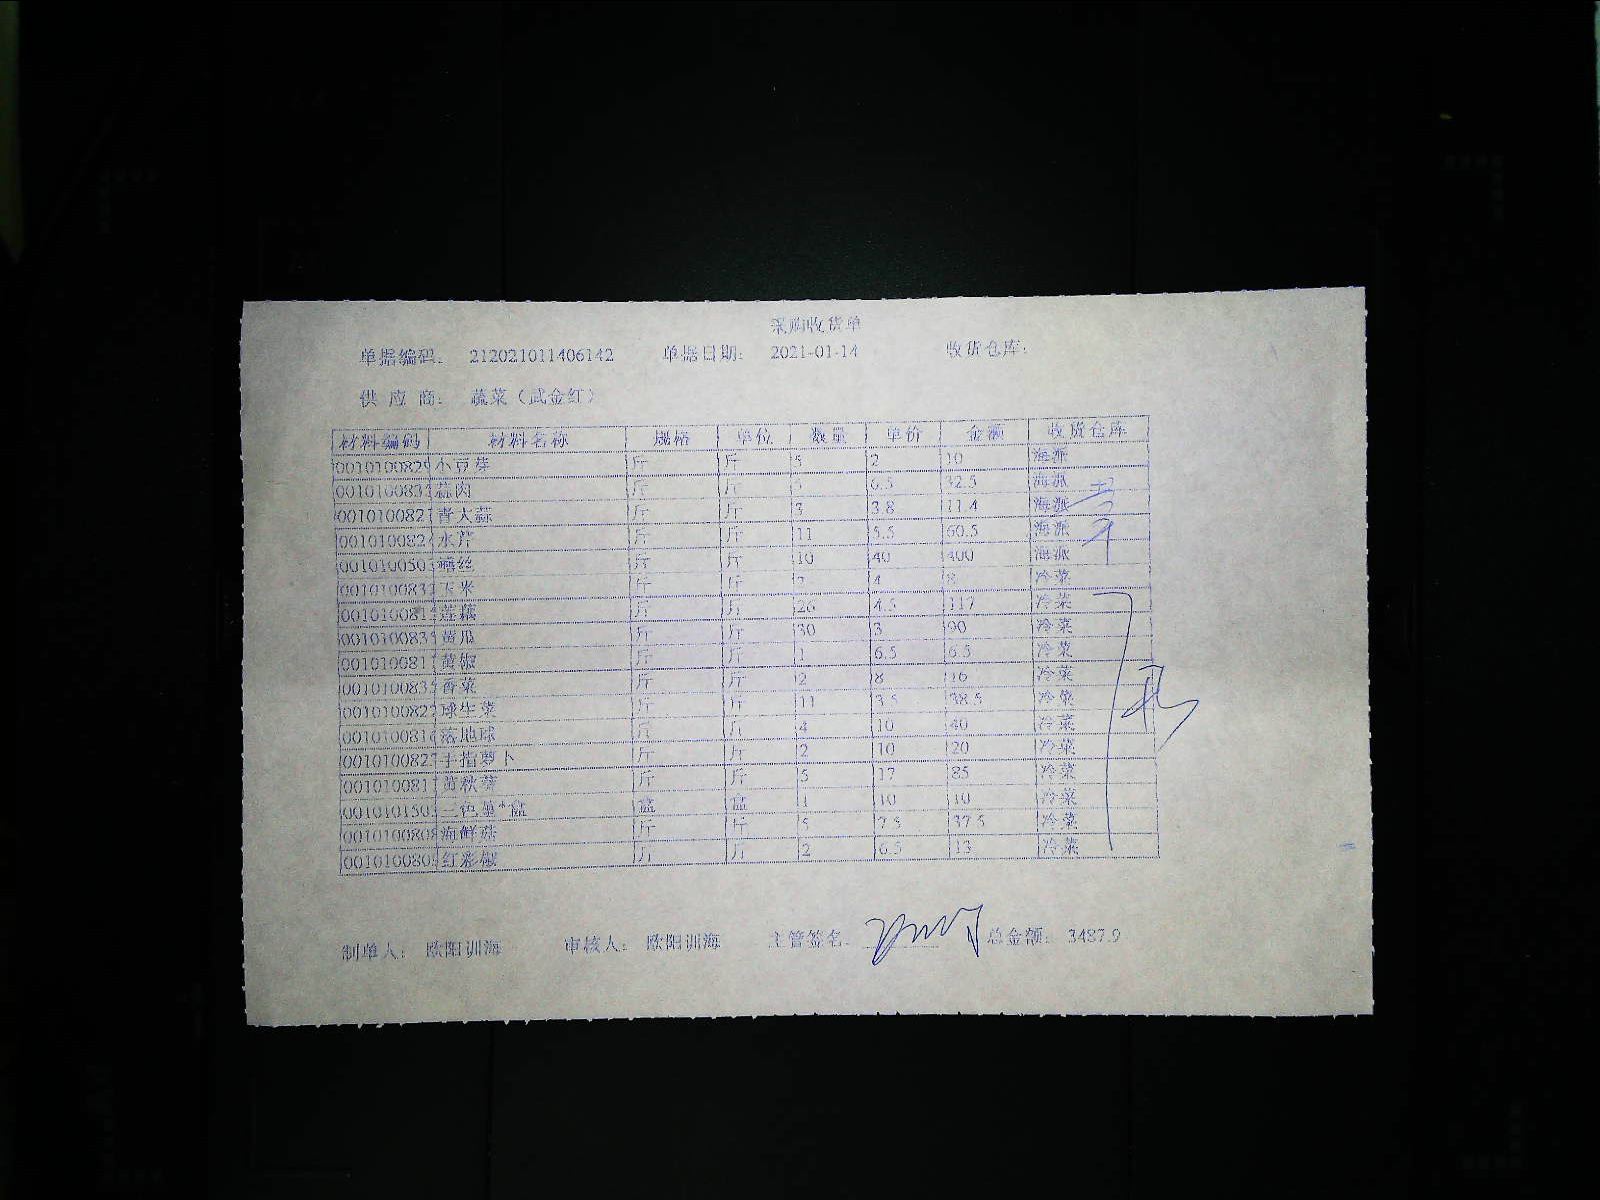 采购收货单
单据编码: 212021011406142 单据日期: 2021-01-14 收货仓库:
供 应 商: 蔬菜（武金红）
材料编码 材料名称 规格 单位 数量 单价 金额 收货仓库
0010100829 小豆芽 斤 斤 5 2 10 海派
001010083 蒜肉 斤 斤 5 6.5 32.5 海派
001010082 青大蒜 斤 斤 3 3.8 11.4 海派
001010082 水芹 斤 斤 11 5.5 60.5 海派
001010050 斤 斤 10 40 400 海派
001010083 玉米 斤 斤 2 4 8 冷菜
001010081 莲藕 斤 斤 26 4.5 117 冷菜
001010083 黄瓜 斤 斤 30 3 90 冷菜
001010081 黄椒 斤 斤 1 6.5 6.5 冷菜
001010083 香菜 斤 斤 2 8 16 冷菜
001010082 球生菜 斤 斤 11 3.5 38.5 冷菜
001010081 落地球 斤 斤 4 10 40 冷菜
001010082 手指萝卜 斤 斤 2 10 20 冷菜
001010081 黄秋葵 斤 斤 5 17 85 冷菜
001010150 三色堇*盒 盒 盒 1 10 10 冷菜
001010080 海鲜菇 斤 斤 5 7.5 37.5 冷菜
001010080 红彩椒 斤 斤 2 6.5 13 冷菜
制单人: 欧阳训海 审核人: 欧阳训海 主管签名: 总金额: 3487.9